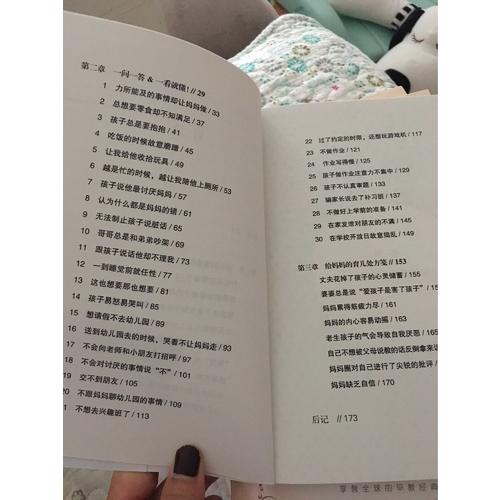 第二章 一问一答 & 一看就懂! // 29
1 力所能及的事情却让妈妈做 / 33
2 总想要零食却不知满足 / 37
3 孩子总是要抱抱 / 41
4 吃饭的时候故意磨蹭 / 45
5 让我给他收拾玩具 / 49
6 越是忙的时候,越让我陪他上厕所 / 53
7 孩子说他最讨厌妈妈 / 57
8 认为什么都是妈妈的错 / 61
9 无法制止孩子说脏话 / 65
10 哥哥总是和弟弟吵架 / 69
11 跟孩子说话他却不理我 / 73
12 一到睡觉前就任性 / 77
13 这也想要那也想要 / 81
14 孩子易怒易哭叫 / 85
15 想请假不去幼儿园 / 89
16 送到幼儿园去的时候,哭着不让妈妈走 / 93
17 不会向老师和小朋友打招呼 / 97
18 不会对讨厌的事情说“不” / 101
19 交不到朋友 / 105
20 不跟妈妈聊幼儿园的事情 / 109
1 不想去兴趣班了 / 113
22 过了约定的时限,还想玩游戏机 / 117
23 不做作业 / 121
24 作业写得慢 / 125
25 孩子做作业注意力不集中 / 129
26 孩子不认真审题 / 133
27 骗家长说去了补习班 / 137
28 不做好上学前的准备 / 141
29 在家发泄对朋友的不满 / 145
30 在学校开放日故意捣乱 / 149
第三章 给妈妈的育儿处方笺 // 153
丈夫花掉了孩子的心灵储蓄 / 155
婆婆总是说“爱孩子是害了孩子” / 158
妈妈累得筋疲力尽 / 161
妈妈的内心容易动摇 / 163
老生孩子的气会导致自我厌恶 / 165
自己不想被父母说教的话反倒拿来说
妈妈圈对自己进行了尖锐的批评 /
妈妈缺乏自信 / 170
后记 // 173
享誉全球的早教经典